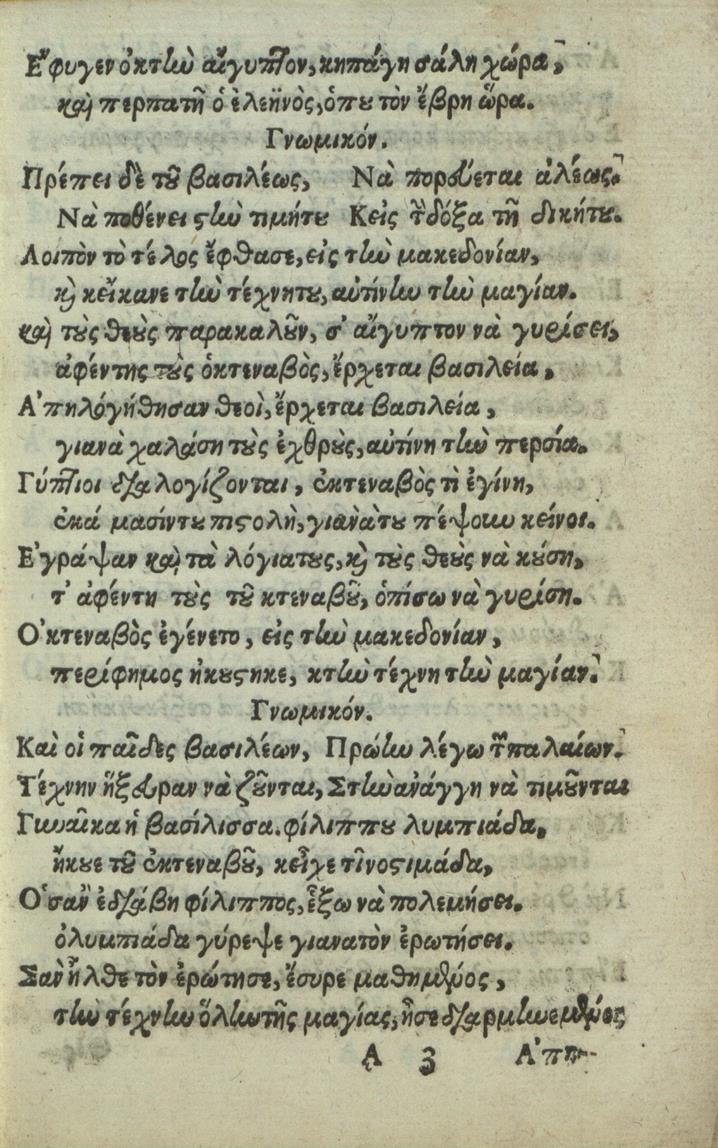 Ἔφυγεν ὀκτὼ αἴγυπτον, κηπάγη σάλη χώρα,
καὶ περπατῆ ὁ ἐλεηνὸς, ὁπου τὸν ἔβρη ὥρα.
Γνωμικόν.
Πρέπει δὲ τοῦ βασιλέως, Νὰ πορεύεται ἀλέως.
Νὰ ποθένει στὼ τιμήτου Κεἰς τ δόξα τῆ δικήτου.
Λοιπὸν τὸ τέλος ἔφθασε, εἰς τὼ μακεδονίαν,
κὶ κεἴκανε τὼ τέχνητου, αὐτίνω τὼ μαγίαν.
καὶ τοὺς θεοὺς παρακαλοῦν, σ' αἴγυπτον νὰ γυρίσει,
ἀφέντης τοὺς ὁκτεναβὸς, ἔρχεται βασιλεία,
Ἀπηλόγήθησαν θεοὶ, ἔρχεται βασιλεία,
γιανὰ χαλάση τοὺς ἐχθροὺς, αὐτίνη τὼ περσία.
Γύπτιοι διαλογίζονται, ἐκτεναβὸς τὶ ἐγίνη,
ἐκά μασίντου πιστολὴ, γιανὰ του πέψουν κεῖνοι.
Ἐγράψαν καὶ τὰ λόγιατους, κὶ τοὺς θεοὺς νὰ κούση,
τ' ἀφέντη τοὺς τοῦ κτεναβοῦ, ὁπίσω νὰ γυρίση.
Ὀκτεναβὸς ἐγένετο, εἰς τὼ μακεδονίαν,
περίφημος ἠκούστηκε, κτὼ τέχνη τὼ μαγίαν.
Γνωμικόν.
Καὶ οἱ παῖδες βασιλέων, Πρώτω λέγω τ παλαίων.
Τέχνην ἤξευραν νὰ ζοῦνται, Στὼ ἀνάγγη νὰ τιμοῦνται
Γωαῖκα ἡ βασίλισσα. φίλιππου λυμπιάδα,
ἤκουε τοῦ ἐκτεναβοῦ, κεἶχε τῖνοστιμάδα,
Ὁσὰν ἐδιάβη φίλιππος, ἔξω νὰ πολεμήσει.
ὀλυμπιάδα γύρεψε γιανατὸν ἐρωτήσει.
Σὰν ἦλθε τὸν ἐρώτησε, ἔσυρε μαθημένος,
τὼ τέχνω ὅλω τῆς μαγίας, ἦσε διαρμωεμένος
Α 3 Ἀπη-